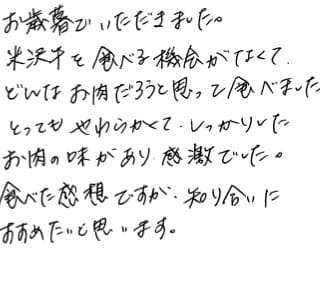 お歳暮でいただきました。
米沢牛を食べる機会がなくて、
どんなお肉だろうと思って食べました
とってもやわらかくて、しっかりした
お肉の味があり感激でした。
食べた感想ですが、知り合いに
おすすめたいと思います。